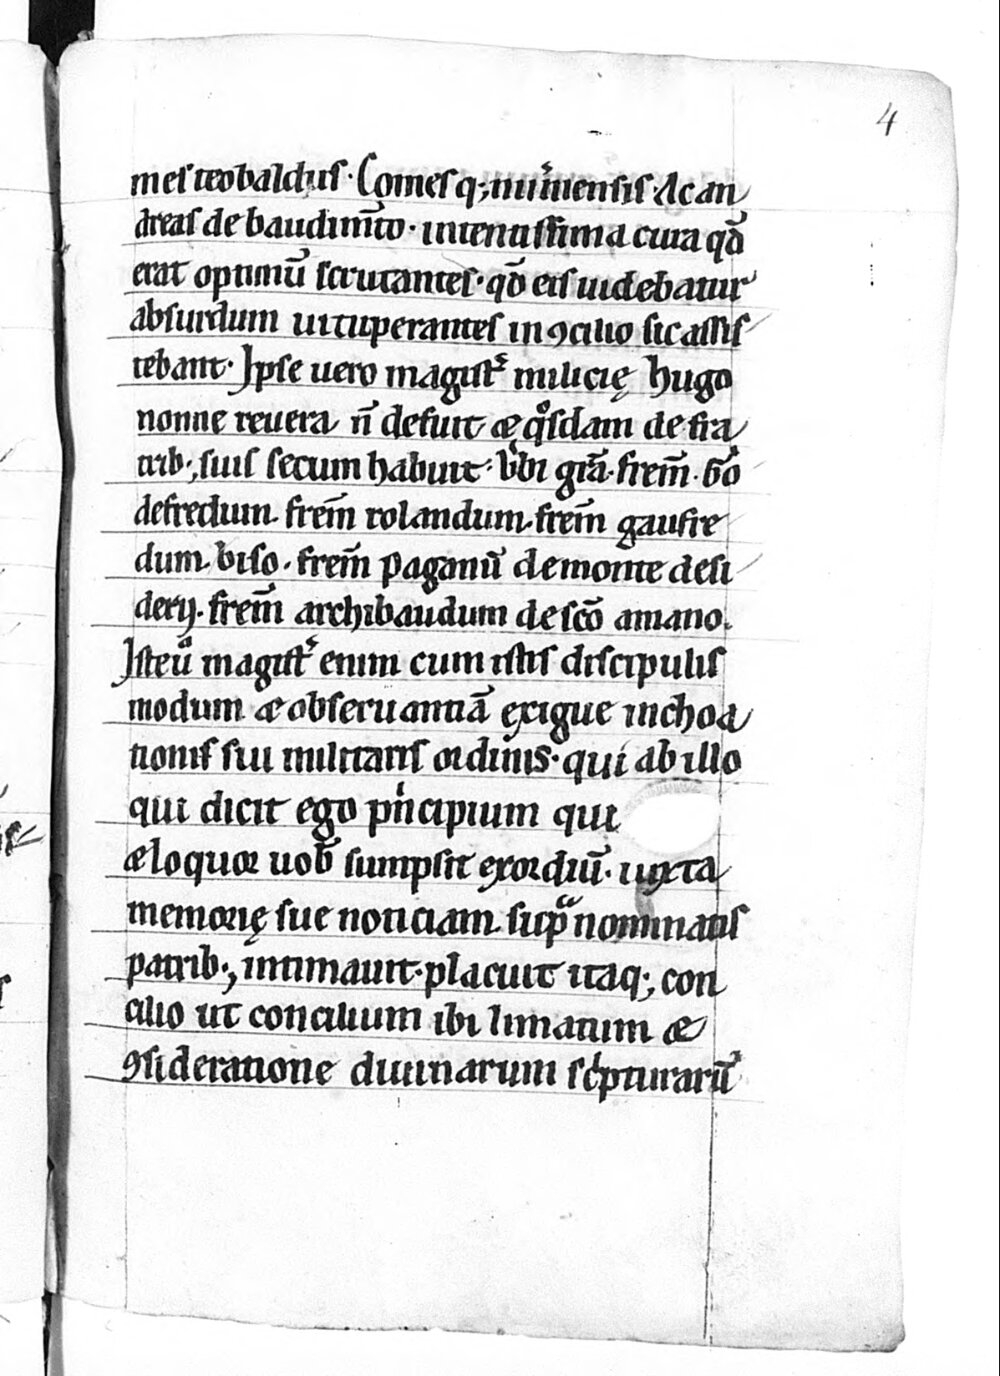 4
mes teobaldus· Comes q; niũnensis· Ac an
dreas de baudim̃to· intentissima cura qđ
erat optimũ scrutantes· qđ eis uidebatur
absurdum uituperantes in ꝯcilio sic assis
tebant· Ipse uero magist᷑ milicię hugo
nonne reuera ñ defuit & qͦsdam de fra
trib; suis secum habuit· ůbi grã· frem̃· Go
defredum· frem̃ rolandum· frem̃ gaufre
dum· biso· frem̃ paganũ de monte desi
derij· frem̃ archibaudum de sc̃o amano.
Iste uͦ magist᷑ enim cum istis discipulis
modum & obseruantiã exigue inchoa
tionis sui militaris ordinis· qui ab illo
qui dicit ego pͥncipium qui
& loquor uob̃ sumpsit exordiũ· iuxta
memorię sue noticiam suprͣ nominatis
patrib; intimauit· placuit itaq; con
cilio ut concilium ibi limatum &
ꝯsideratione diuinarum scͥpturarũ